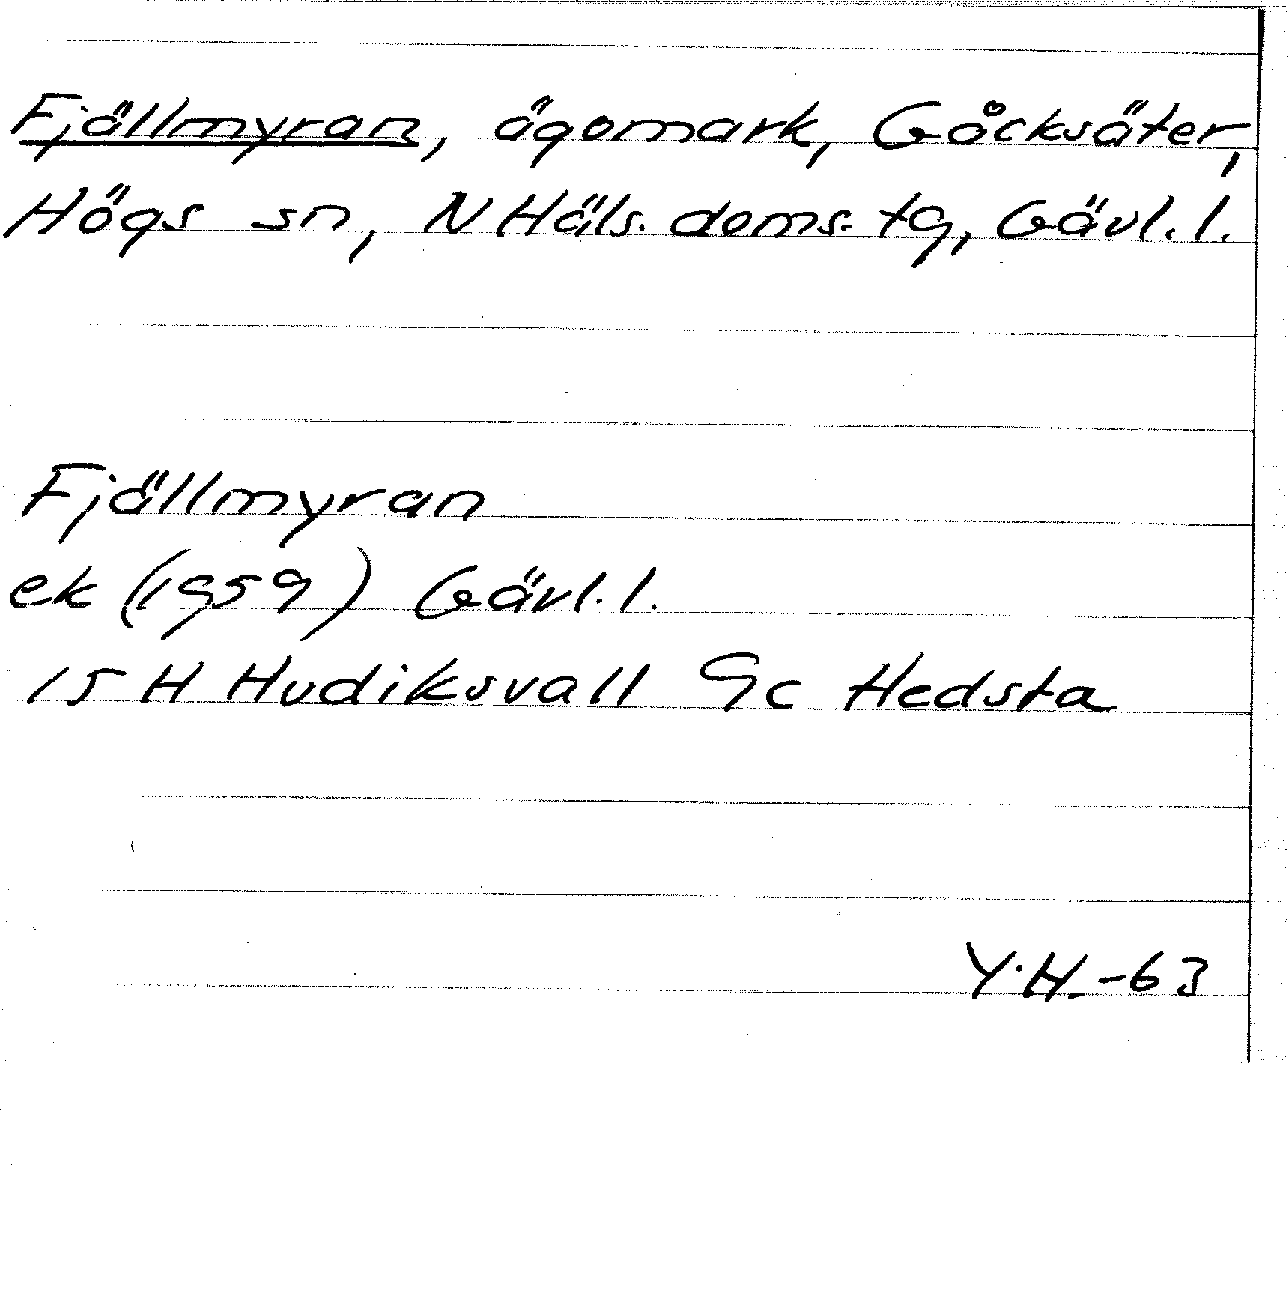 Fjällmyran, ägomark, Gåcksäter,
Högs sn, N Häls. doms. tg, Gävl. l.
Fjällmyran
ek (1959) Gävl. l.
15 H Hudiksvall 9c Hedsta
Y.H. -63